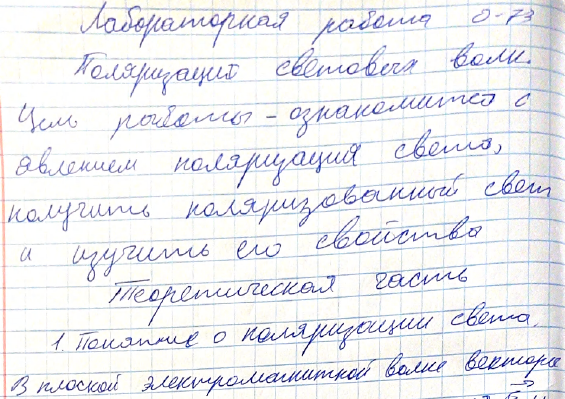 Лабораторная работа О-73
Поляризация световых волн.
Цель работы - ознакомится с
явлением поляризация света,
получить поляризованный свет
и изучить его свойства
Теоретическая часть
1. Понятие о поляризации света.
В плоской электромагнитной волне вектора